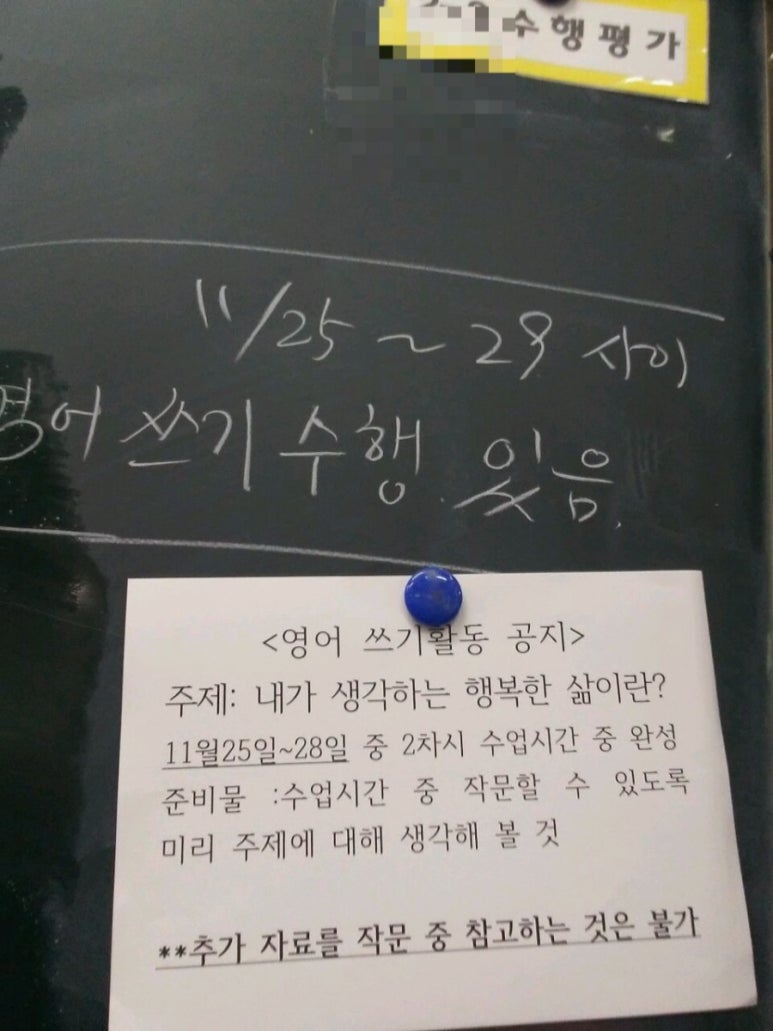 수행평가
11/25 ~ 29 사이
영어 쓰기 수행 있음.
<영어 쓰기활동 공지>
주제: 내가 생각하는 행복한 삶이란?
11월25일~28일 중 2차시 수업시간 중 완성
준비물 :수업시간 중 작문할 수 있도록
미리 주제에 대해 생각해 볼 것
**추가 자료를 작문 중 참고하는 것은 불가